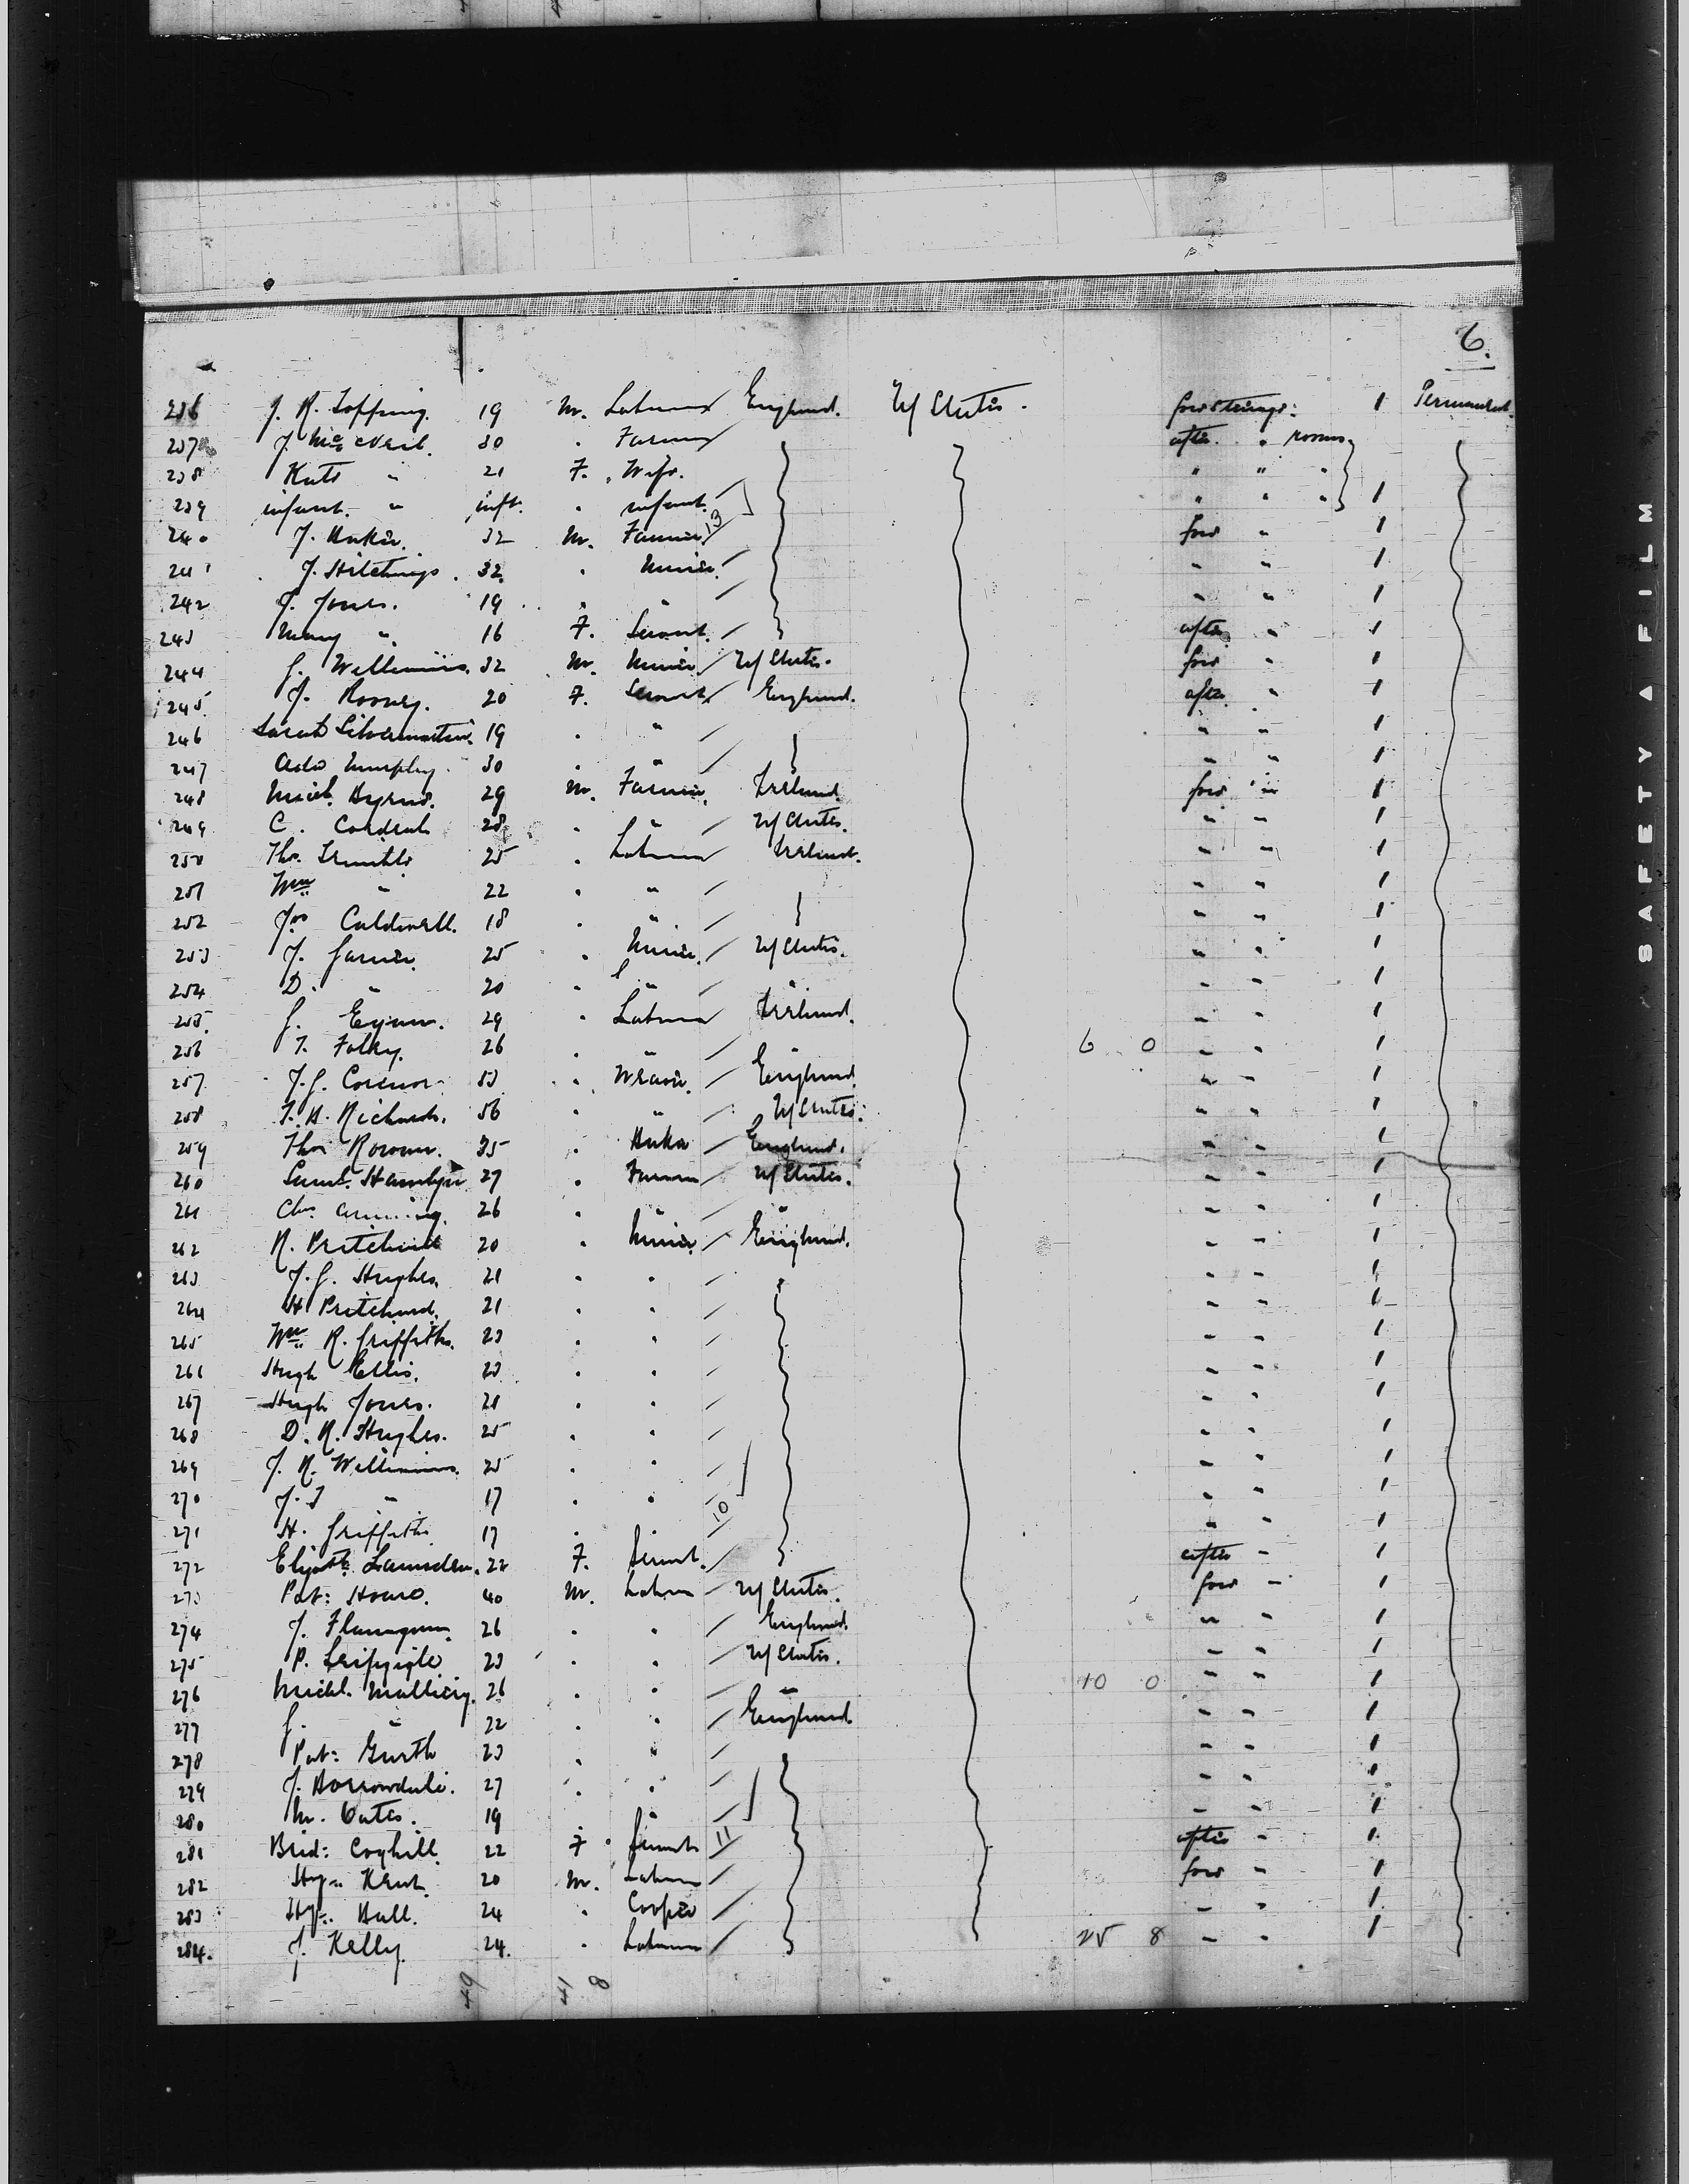 6.
236 J. R. Topping. 19 M. Labourer England. U/States. for Steerage. 1 Permanent.
237 J. McNeil. 30 " Farmer after. " rooms
238 Kate " 21 F. Wife. " " "
239 infant. " inft. " infant. " " " 1
240 J. Baker. 32 M. Farmer. 13 for " 1
241 J. Hitchings. 32. " Miner. " " 1
242 J. Jones. 19 " " " " 1
243 Mary " 16 F. Servt. after " 1
244 J. Williams. 32 M. Miner U/States. for " 1
245. J. Rooney. 20 F. Servt England. after " 1
246 Sarah Silvermstein. 19 " " " " 1
247 Ada Murphy. 30 " " " " 1
248 Mich. Byrne. 29 M. Farmer. Ireland. for " 1
249 C. 28 " " U/States. " " 1
250 Thos. 25 " Labourer Ireland. " " 1
251 Wm " 22 " " " " 1
252 Jno Caldwell. 18 " " " " 1
253 J. 25 " Miner. U/States. " " 1
254 D. " 20 " " " " " 1
255. J. Egan. 29 " Labourer Ireland. " " 1
256 T. Foley. 26 " " 6 0 " " 1
257. J. J. Connor. 53 " Weaver. England. " " 1
258 T. H. Richards. 56 " " U/States. " " 1
259 Thos Rowan. 35 " Baker England. " " 1
260 Saml. Hamlyn 27 " Farmer U/States. " " 1
261 Chs. 26 " " " " " 1
262 R. Pritchard 20 " Miner England. " " 1
263 J. J. Hughes. 21 " " " " 1
264 H Pritchard. 21 " " " " 1
265 Wm. R. Griffiths. 23 " " " " 1
266 Hugh Ellis. 23 " " " " 1
267 Hugh Jones. 21 " " " " 1
268 D. R. Hughes. 25 " " " " 1
269 J. R. Williams. 25 " " " " 1
270 J. J " 17 " " " " 1
271 H. Griffith 17 " " 10 " " 1
272 Elizbth. Lumsden. 22 F. Servt. after " 1
273 Pat: Howe. 40 M. Labour U/States. for " 1
274 J. Flannagan. 26 " " England. " " 1
275 P. 23 " " U/States. " " 1
276 Michl. 26 " " " 10 0 " " 1
277 J. " 22 " " England " " 1
278 Pat: Garth 23 " " " " 1
279 J. Borrowdale. 27 " " " " 1
280 M. Oates. 19 " " " " 1
281 Brid: Coghill. 22 F " Servt 11 after " 1
282 Hy: Kent. 20 M. Labour for " 1
283 Hy: Hall. 24 " Cooper " " 1
284. J. Kelly. 24. " Labourer 25 8 " " 1
49 41 8
SAFETY A FILM